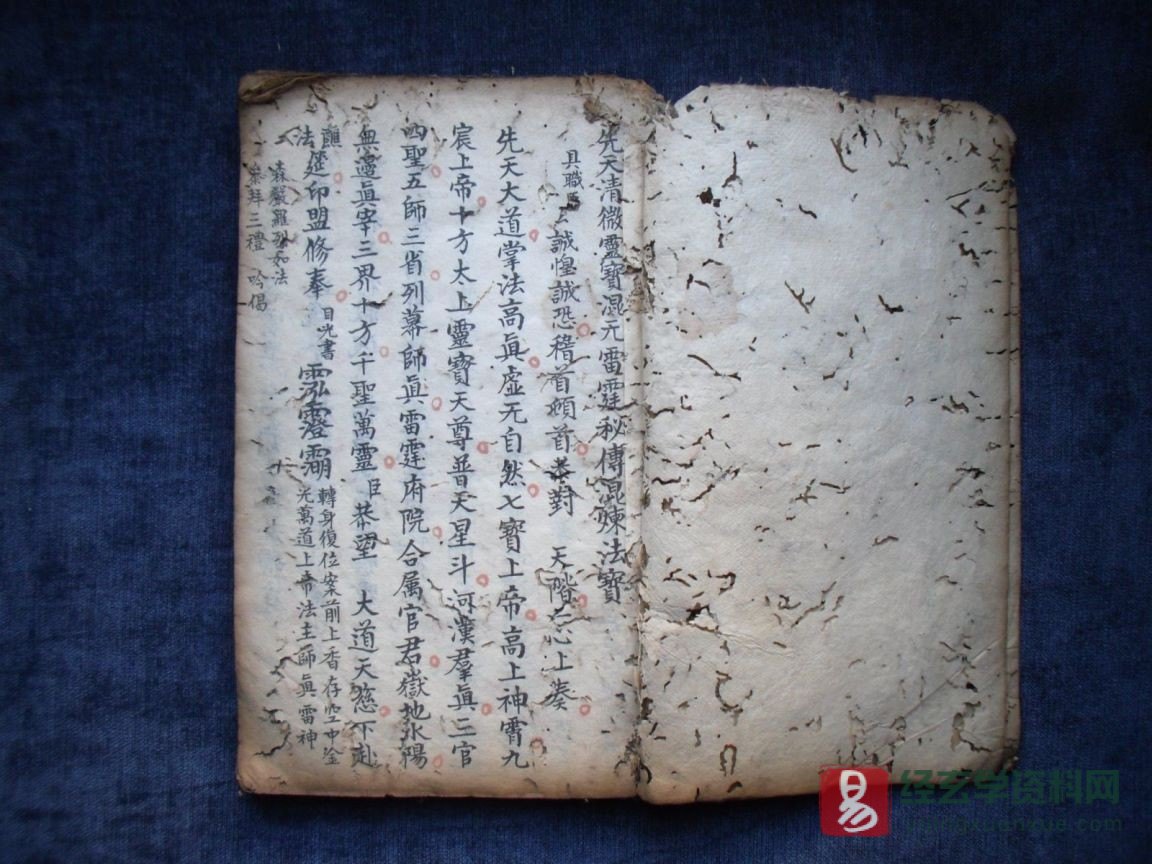 先天清微靈寶混元雷霆秘傳混煉法寶
具職臣 誠惶誠恐稽首頓首恭對 天階 心上奏
先天大道掌法高真虛无自然七寶上帝高上神霄九
宸上帝十方太上靈寶天尊普天星斗河漢羣真三官
四聖五師三省列幕師真雷霆府院合属官君嶽地水陽
無邊真宰三界十方千聖萬靈臣恭望 大道天慈下赴
醮
筵印盟修奉 目光書
轉身復位案前上香存空中金
光萬道上帝法主師真雷神
法
森嚴羅列如法
叅拜三禮 吟偈
易
经玄学资料网